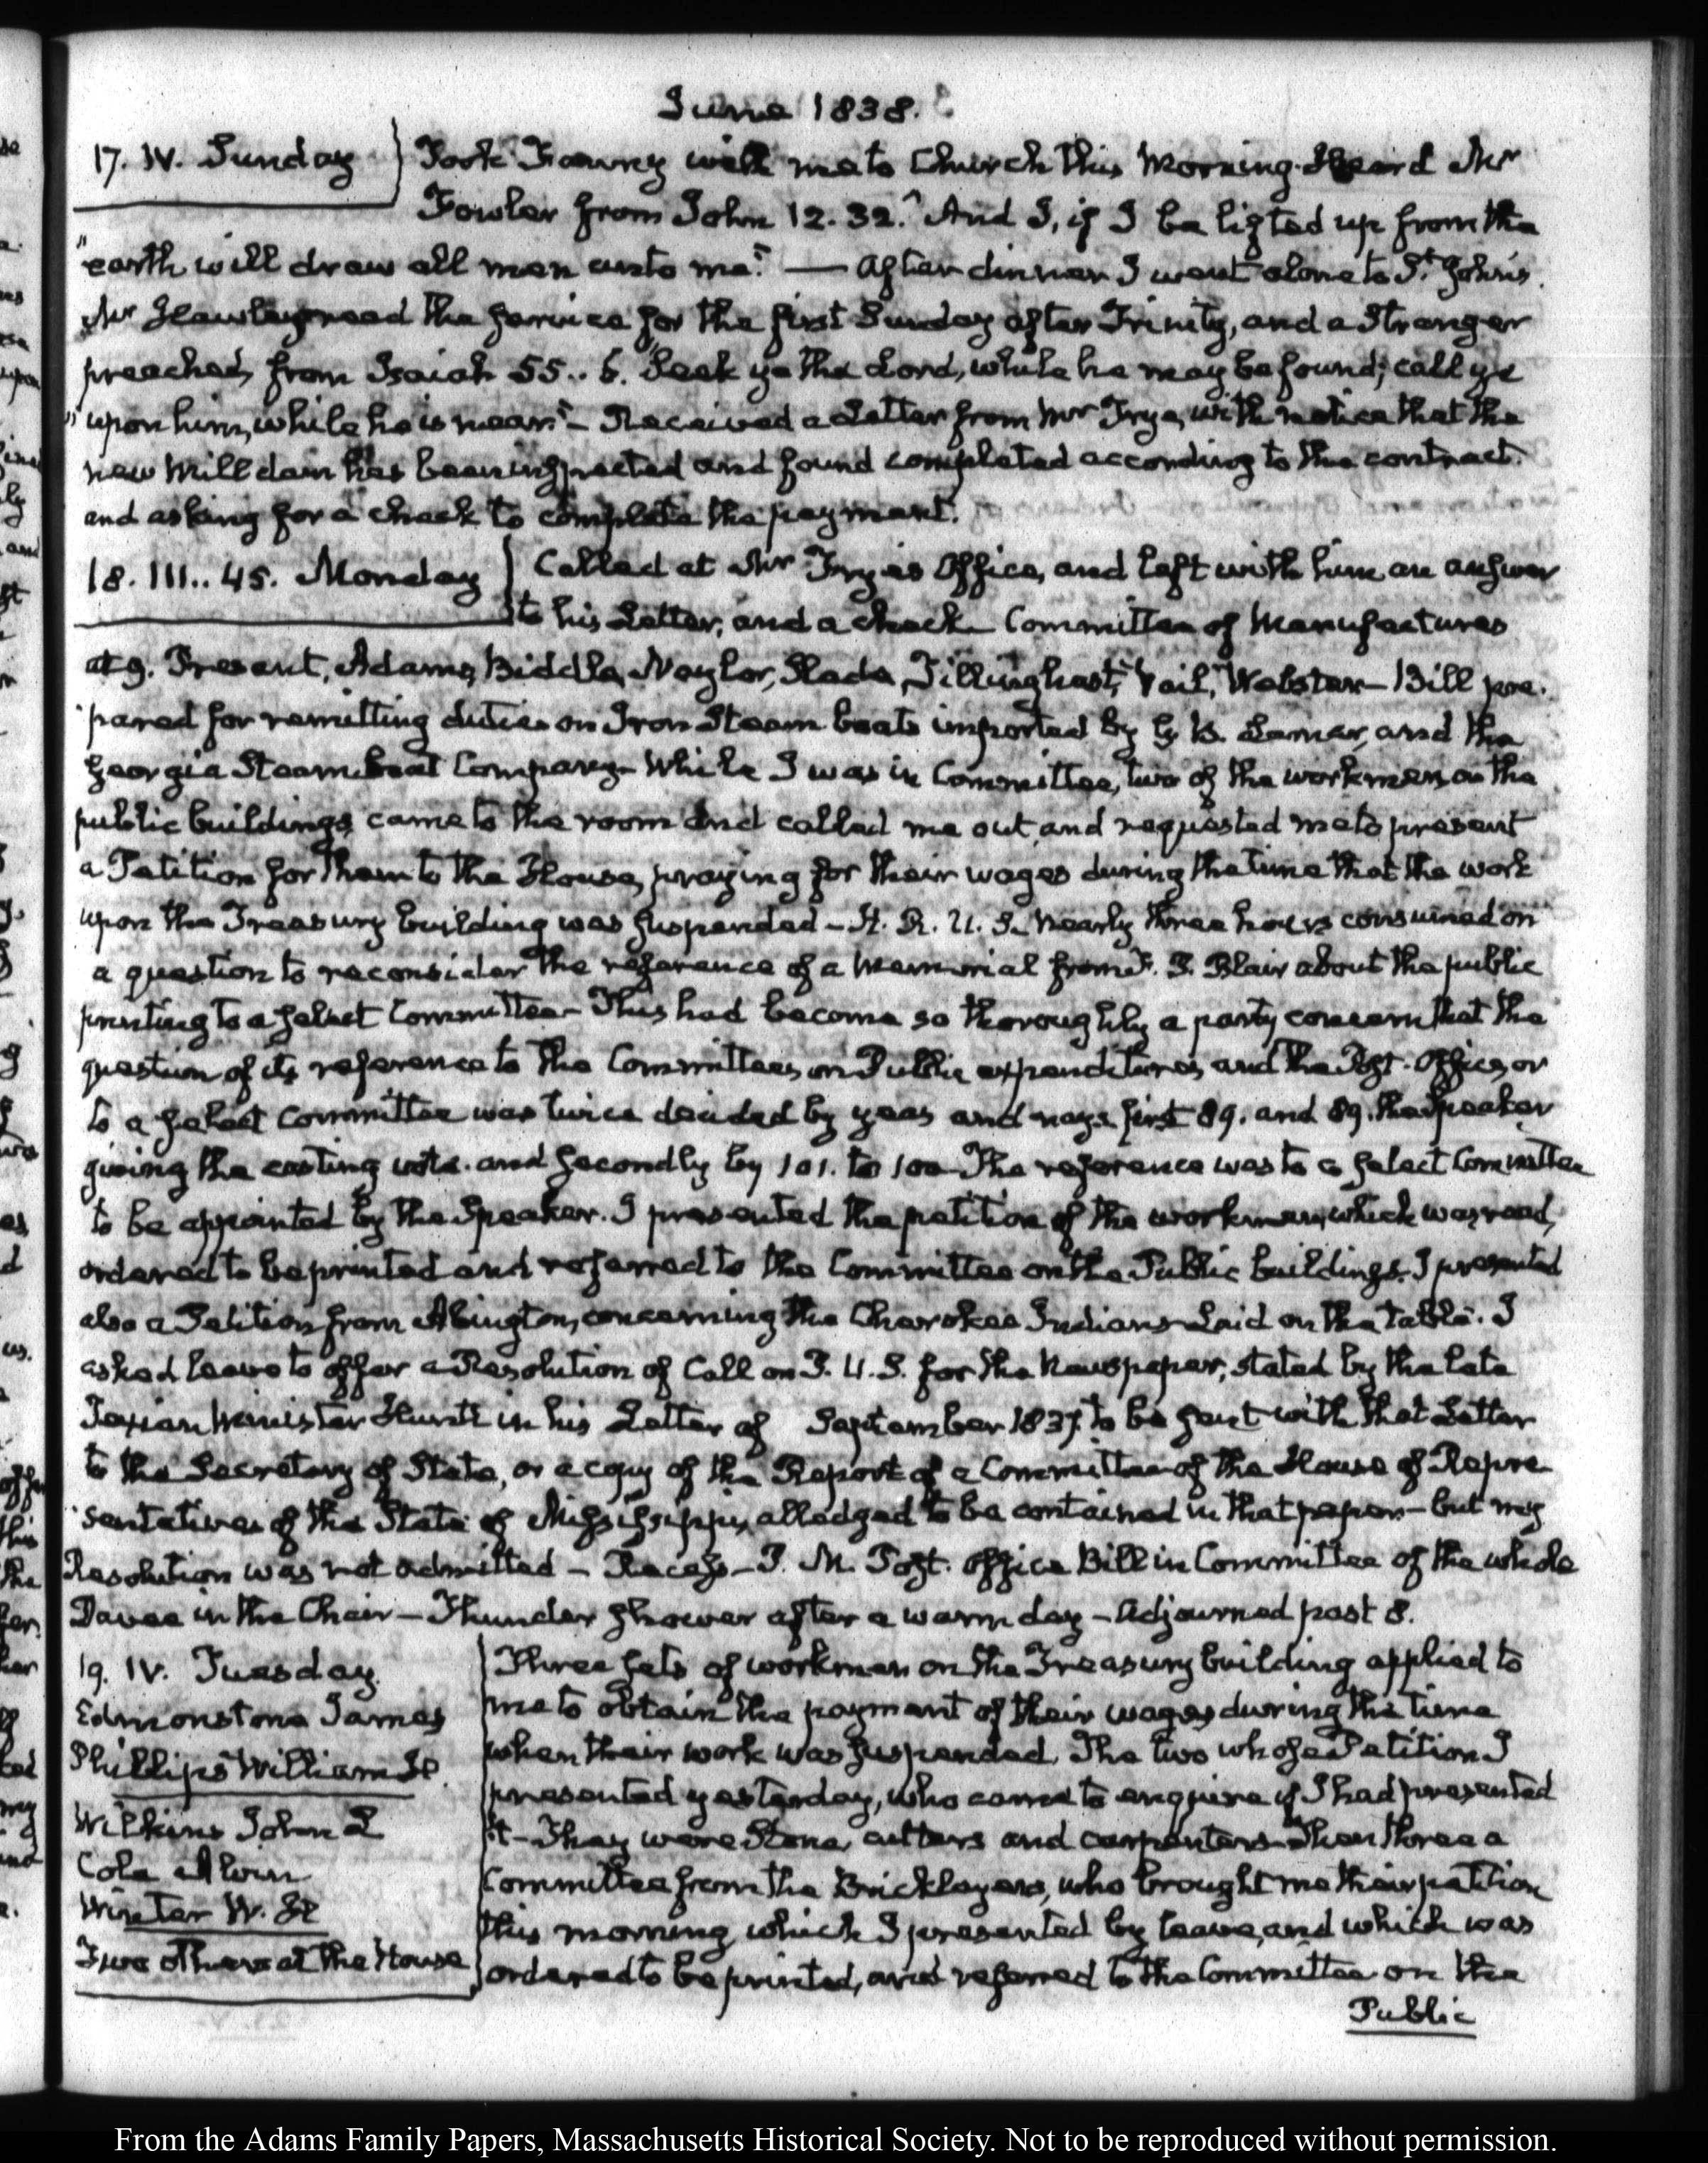 June 1838.
17. IV. Sunday
Took Fanny with me to Church this Morning. Heard Mr
Fowler from John 12. 32. "And I, if I be lifted up from the
"earth will draw all men unto me." — After dinner I went alone to St. John's.
Mr Hawley read the service for the first Sunday after Trinity, and a Stranger
preached, from Isaiah 55. 6. Seek ye the Lord, while he may be found; call ye
"upon him, while he is near" – Received a Letter from Mr Frye, with notice that the
new Mill dam has been inspected and found completed according to the contract.
and asking for a check to complete the payment.
18. III.. 45. Monday
Called at Mr Frye's Office, and left with him an answer
to his Letter, and a check. Committee of Manufactures
at 9. Present, Adams, Biddle, Naylor, Slade, Tillinghast, Vail, Webster – Bill pre-
pared for remitting duties on Iron Steam boats imported by G. B. Lamar, and the
Georgia Steamboat Company – While I was in Committee, two of the workmen, on the
public buildings, came to the room and called me out, and requested me to present
a Petition for them to the House, praying for their wages during the time that the work
upon the Treasury building was suspended – H. R. U. S. Nearly three hours consumed on
a question to reconsider the reference of a Memorial from F. P. Blair about the public
printing to a select Committee – This had become so thoroughly a party concern that the
question of its reference to the Committees, on Public expenditures, and the Post-Office, or
to a select Committee was twice decided by yeas and nays first 89. and 89. the Speaker
giving the casting vote. and secondly by 101. to 100 – The reference was to a select Committee
to be appointed by the Speaker. I presented the petition of the workmen, which was read,
ordered to be printed and referred to the Committee on the Public buildings. I presented
also a Petition from Abington, concerning the Cherokee Indians – Laid on the table. I
asked leave to offer a Resolution of Call on P. U. S. for the Newspaper, stated by the late
Texian Minister Hunt in his Letter of September 1837. to be sent with that Letter
to the Secretary of State, or a copy of the Report of a Committee of the House of Repre-
sentatives of the State of Mississippi, alledged to be contained in that paper – but my
Resolution was not admitted – Recess – P. M. Post. Office Bill in Committee of the whole
Davee in the Chair – Thunder shower after a warm day – Adjourned past 8.
19. IV. Tuesday.
Edmonstone James
Phillips William H.
Wilkins John L
Cole Alvin
Winter W. H
Two others at the House
Three sets of workmen on the Treasury building applied to
me to obtain the payment of their wages during the time
when their work was suspended. The two whose Petition I
presented yesterday, who came to enquire if I had presented
it – They were Stone cutters and carpenters – Then three a
Committee from the Bricklayers, who brought me their petition
this morning, which I presented by leave, and which was
ordered to be printed, and referred to the Committee on the
Public
From the Adams Family Papers, Massachusetts Historical Society. Not to be reproduced without permission.